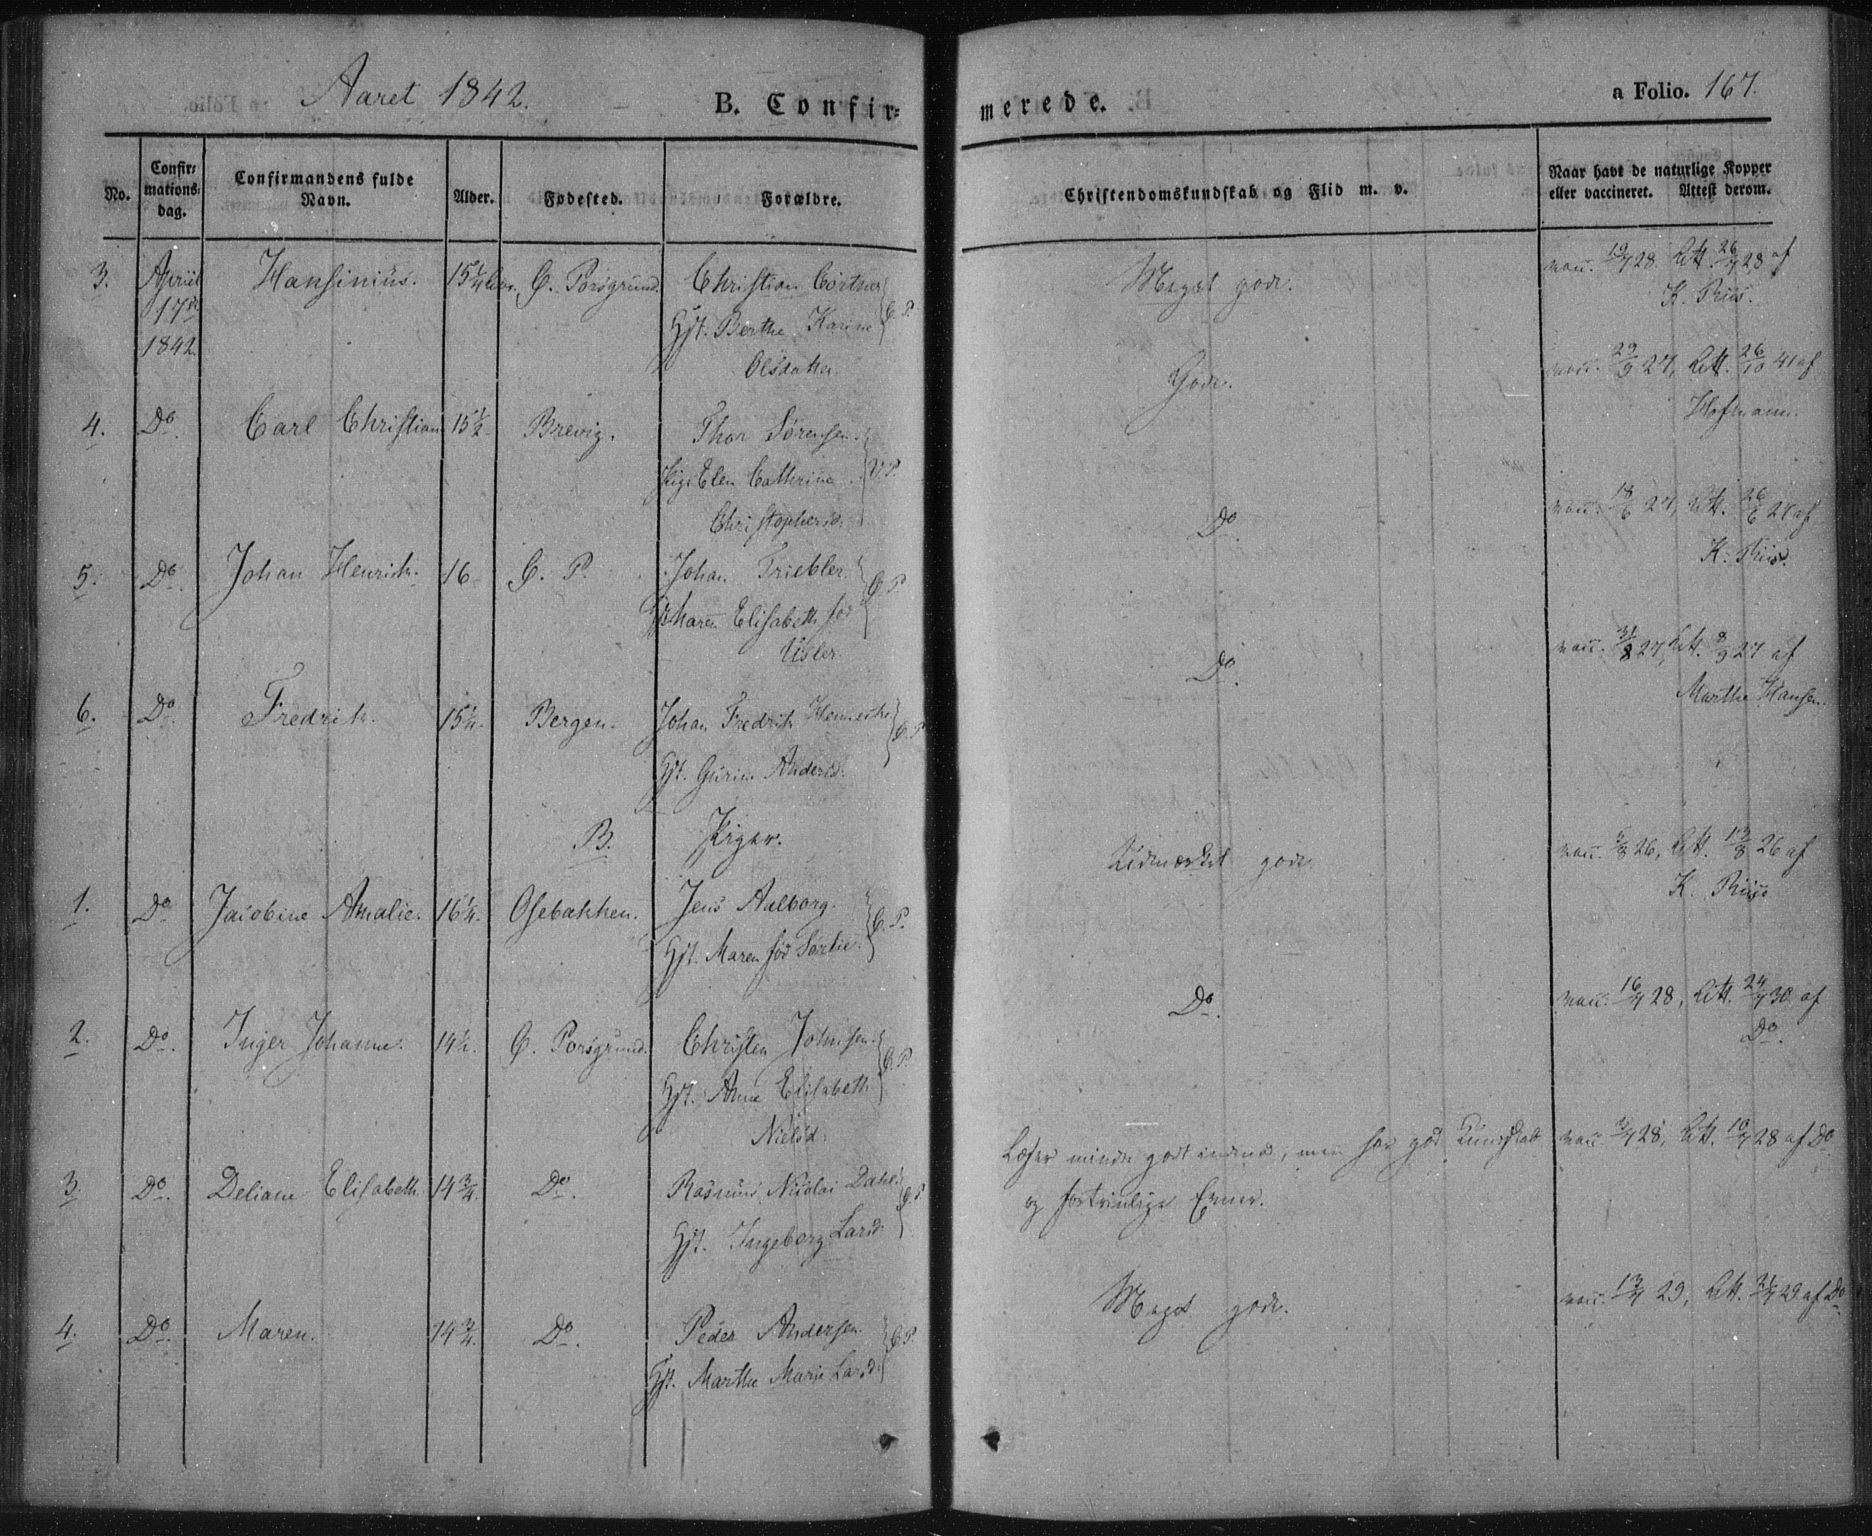 Aaret 1842.
B. Confir=
merede.
a Folio. 167.
No.
Confir=
mations=
dag.
Confirmandens fulde
Navn.
Alder.
Fødested.
Forældre.
Christendomskundskab og Flid m. v.
Naar havt de naturlige Kopper
eller vaccineret. Attest derom.
3. Apriil Hansinius. 15 1/4 Ø. Porsgrund. Christian Cortner
17de Hst. Berthe Karine Ø. P.
1842. Olsdatter
Meget gode.
vacc. 19/7 28. Att. 26/7 28 af
K. Riis.
4. Do. Carl Christian 15 1/2 Brevig. Thor Sørensen.
Pige Elen Cathrine V. P.
Christophersd.
Gode.
vacc. 29/9 27, Att. 26/10 41 af
Hofmann.
5. Do. Johan Henrich. 16 Ø. P. Johan Triebler
Maren Elisabeth fød Ø. P.
Usler
Do.
vacc. 18/6 27, Att. 26/6 27 af
K. Riis.
6. Do. Fredrik. 15 1/4. Bergen. Johan Fredrik
Hst. Gurine Andersd. Ø. P.
Do.
vacc. 31/8 27, Att. 8/9 27 af
Marthe Hansen.
B. Piger.
1. Do. Jacobine Amalie. 16 1/4. Osebakken. Jens Aalborg.
Hst. Maren fød Ø. P.
Udmærket gode
vacc. 26, Att. 26 af
K. Riis
2. Do. Inger Johanne. 14 1/2. Ø. Porsgrund. Christen Johnsen.
Hst. Anne Elisabeth Ø. P.
Nielsd.
Do.
vacc. 16/7 28, Att. 24/7 30 af
Do.
3. Do. Deliane Elisabeth. 14 3/4. Do. Rasmus Nicolai Dahl
Hst. Ingeborg Larsd. Ø. P.
Læser mindre godt indenad, men har god Kundskab
og fortrinlige Evner.
vacc. 28, Att. 10/7 28 af Do
4. Do. Maren. 14 3/4. Do. Peder Andersen
Hst. Marthe Marie Larsd. Ø. P.
Meget gode.
vacc. 13/7 29, Att. 21/7 29 af Do